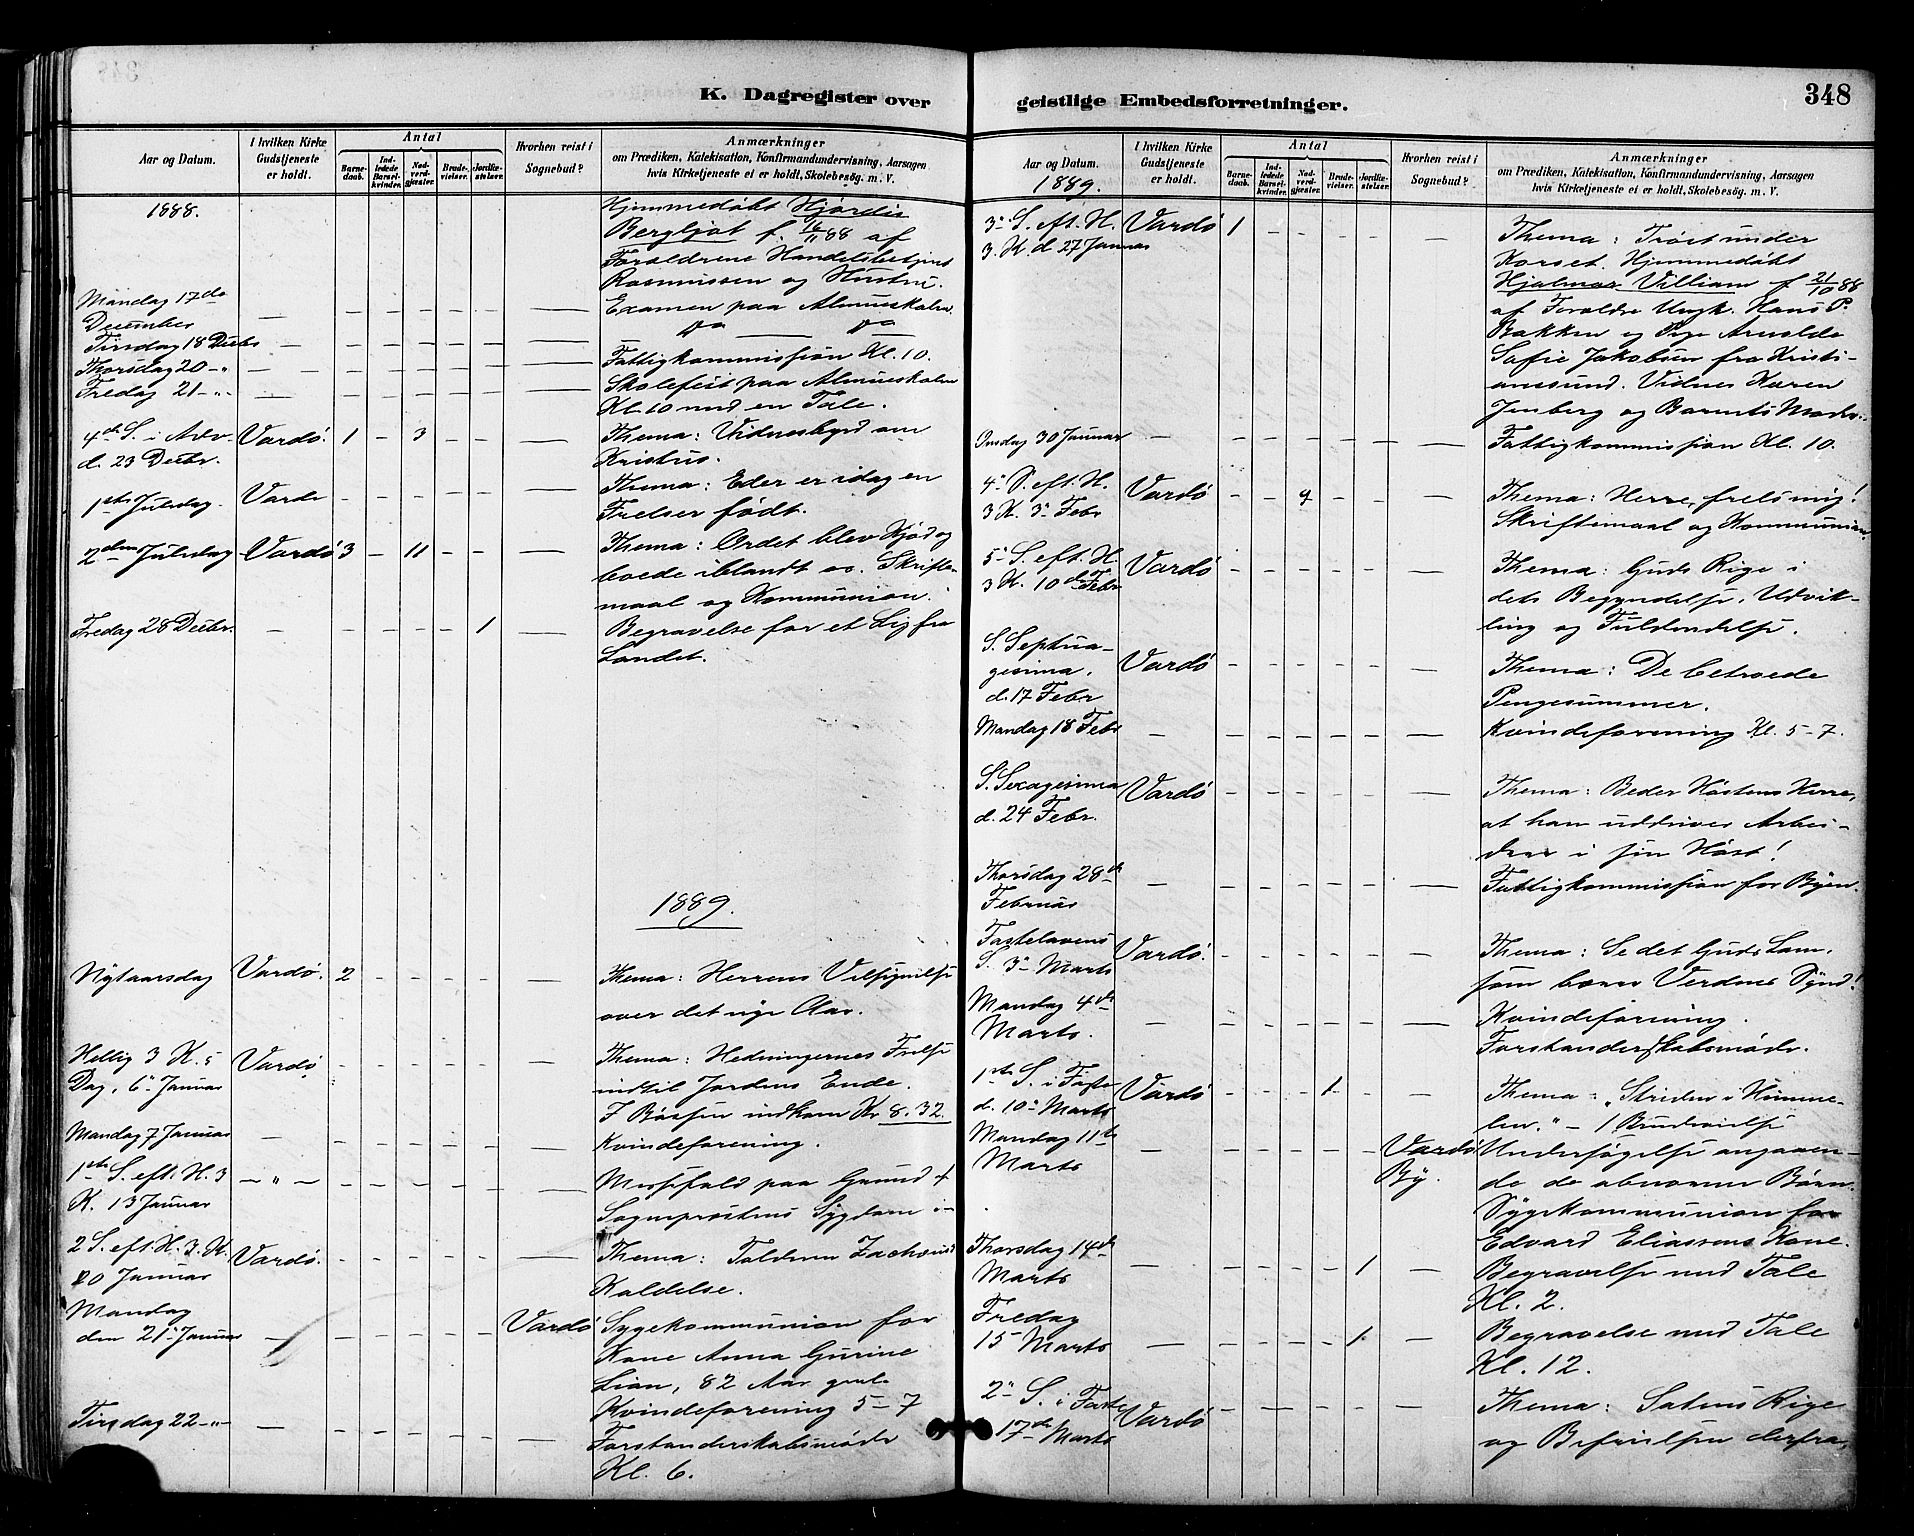 K. Dagregister over
Aar og Datum.
I hvilken Kirke Gudstjeneste er holdt.
Antal
Barnedaab.
Indledede Barselkvinder.
Nadverdgjæster.
Brudevielser.
Jordfæstelser.
Hvorhen reist i Sognebud?
Anmærkninger
om Prædiken, Katekisation, Konfirmandundervisning, Aarsagen
hvis Kirketjeneste ei er holdt, Skolebesøg. m. V.
1888.
Hjemmedøbt Hjørdis
Bergljot f. 16/11 88 af
Forældrene Handelsbetjent
Rasmussen og Hustru.
Mandag 17de - - - - - - - Examen paa Almueskolen
December
Tirsdag 18 Decbr - - - - - - - do do
Thorsdag 20 - " - - - - - - - Fattigkommission Kl. 10.
Fredag 21 - " - - - - - - - - Skolefest paa Almueskolen
Kl. 10 med en Tale.
4de S. i Adv. Vardø. 1 - 3 - - - Thema: Vidnesbyrd om
d. 23 Decbr. Kristus.
1ste Juledag. Vardø - - - - - - Thema: Eder er idag en
Frelser født.
2den Juledag Vardø 3 - 11 - - - Thema: Ordet blev Kjød og
boede iblandt os. Skrifte-
maal og Kommunion.
Fredag 28 Decbr. - - - - - 1 - Begravelse for et Lig fra
Landet.
1889.
Nytaarsdag Vardø. 2 - - - - - Thema: Herrens Velsignelse
over det nye Aar.
Hellig 3 K.s Vardø - - - - - - Thema: Hedningernes Frelse
Dag, 6" Januar indtil Jordens Ende.
I Bøssen indkom Kr 8.32.
Mandag 7 Januar - - - - - - - Kvindeforening.
1ste S. eft. H. 3 - " - - - - - - - Messefald paa Grund +
K. 13 Januar Sogneprestens Sygdom
2 S. eft. H. 3. K. Vardø. - - - - - - Thema: Tolderen Zachæus'
20 Januar Kaldelse.
Mandag
den 21" Januar - - - - - - Vardø Sygekommunion for
Kone Anna Gurine
Lian, 82 Aar gml.
Kvindeforening 5-7
Tirsdag 22 - " - - - - - - - - Forstanderskabsmøde
Kl. 6.
geistlige Embedsforretninger.
348
Aar og Datum.
1889.
I hvilken Kirke Gudstjeneste er holdt.
Antal
Barnedaab.
Indledede Barselkvinder.
Nadverdgjæster.
Brudevielser.
Jordfæstelser.
Hvorhen reist i Sognebud?
Anmærkninger
om Prædiken, Katekisation, Konfirmandundervisning, Aarsagen
hvis Kirketjeneste ei er holdt, Skolebesøg. m. V.
3" S. eft. H. Vardø 1 - - - - - Thema: Trøst under
3. K. d. 27 Januar Korset. Hjemmedøbt
Hjalmar Villiam f 21/10 88
af Forældre Ungk. Hans P.
Bakken og Pige Arnolde
Sofie Jakobsen fra Kristi-
anssund. Vidnes Karen
Jenberg og Barnets Moder.
Onsdag 30 Januar - - - - - - - Fattigkommission Kl. 10.
4" S. eft. H. Vardø - - 9 - - - Thema: Herre, frels mig!
3 K. 3" Febr Skriftemaal og Kommunion.
5" S. eft. H. Vardø - - - - - - Thema: Guds Rige i
3 K. 10de Febr dets Begyndelse, Udvik-
ling og Fuldendelse.
S. Septua-
gesima. Vardø - - - - - - Thema: De betroede
d. 17 Febr Pengesummer.
Mandag 18 Febr - - - - - - - Kvindeforening Kl. 5-7.
S. Sexagesima Vardø - - - - - - Thema: Beder Høstens Herre,
d. 24 Febr. at han uddriver Arbei-
dere i sin Høst!
Thorsdag 28de - - - - - - - Fattigkommission for Byen.
Februar
Fastelavens Vardø. - - - - - - Thema: Se det Guds Lam,
S. 3" Marts som bærer Verdens Synd!
Mandag 4de - - - - - - - Kvindeforening.
Marts. Forstanderskabsmøde.
1ste S. i Faste Vardø - - - 1 - - Thema: "Striden i Himme-
d. 10" Marts len." - 1 Brudevielse
Mandag 11te - - - - - - Vardø Undersøgelse angaaen-
Marts By. de de abnorme Børn.
Sygekommunion for
Edvard Eliassens Kone.
Thorsdag 14de - - - - - 1 - Begravelse med Tale
Marts Kl. 2.
Fredag
15 Marts - - - - - 1 - Begravelse med Tale
Kl. 12.
2" S. i Faste Vardø - - - - - - Thema: Satans Rige
17de Marts og Befrielsen derfra.